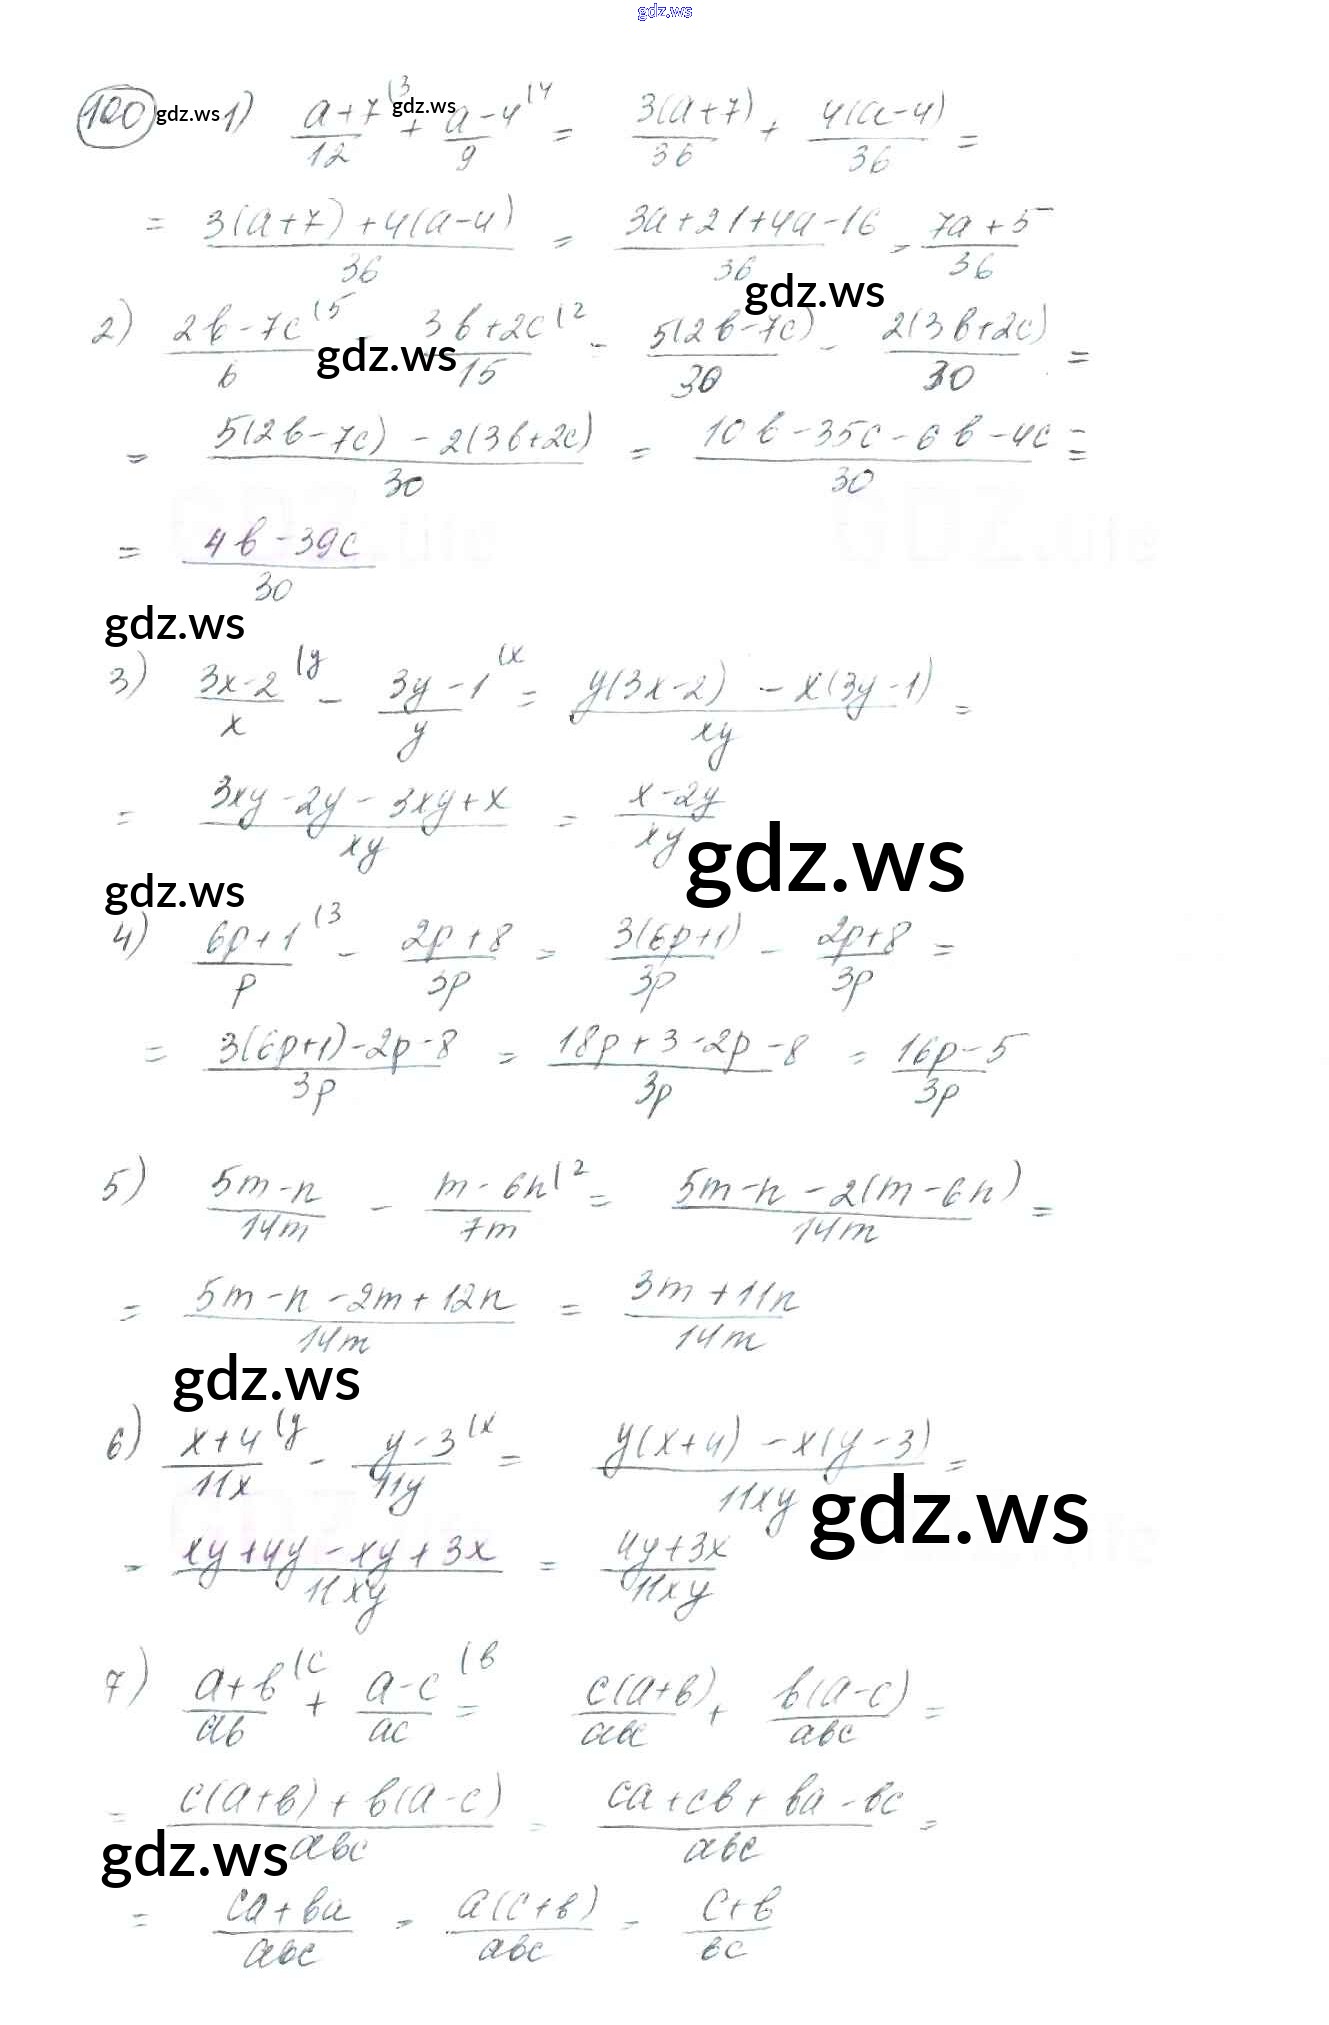 gdz.ws
100 gdz.ws 1) (a+7)/12 (3 + gdz.ws (a-4)/9 (4 = 3(a+7)/36 + 4(a-4)/36 =
= (3(a+7)+4(a-4))/36 = (3a+21+4a-16)/36 = (7a+5)/36
gdz.ws
2) (2b-7c)/6 (5 - gdz.ws (3b+2c)/15 (2 = 5(2b-7c)/30 - 2(3b+2c)/30 =
= (5(2b-7c)-2(3b+2c))/30 = (10b-35c-6b-4c)/30 =
GDZ.life GDZ.life
= (4b-39c)/30
gdz.ws
3) (3x-2)/x (y - (3y-1)/y (x = (y(3x-2)-x(3y-1))/xy =
= (3xy-2y-3xy+x)/xy = (x-2y)/xy
gdz.ws
gdz.ws
4) (6p+1)/p (3 - (2p+8)/3p = 3(6p+1)/3p - (2p+8)/3p =
= (3(6p+1)-2p-8)/3p = (18p+3-2p-8)/3p = (16p-5)/3p
5) (5m-n)/14m - (m-6n)/7m (2 = (5m-n-2(m-6n))/14m =
= (5m-n-2m+12n)/14m = (3m+11n)/14m
gdz.ws
6) (x+4)/11x (y - (y-3)/11y (x = (y(x+4)-x(y-3))/11xy =
gdz.ws
= (xy+4y-xy+3x)/11xy = (4y+3x)/11xy
7) (a+b)/ab (c + (a-c)/ac (b = c(a+b)/abc + b(a-c)/abc =
= (c(a+b)+b(a-c))/abc = (ca+cb+ba-bc)/abc =
gdz.ws
= (ca+ba)/abc = a(c+b)/abc = (c+b)/bc